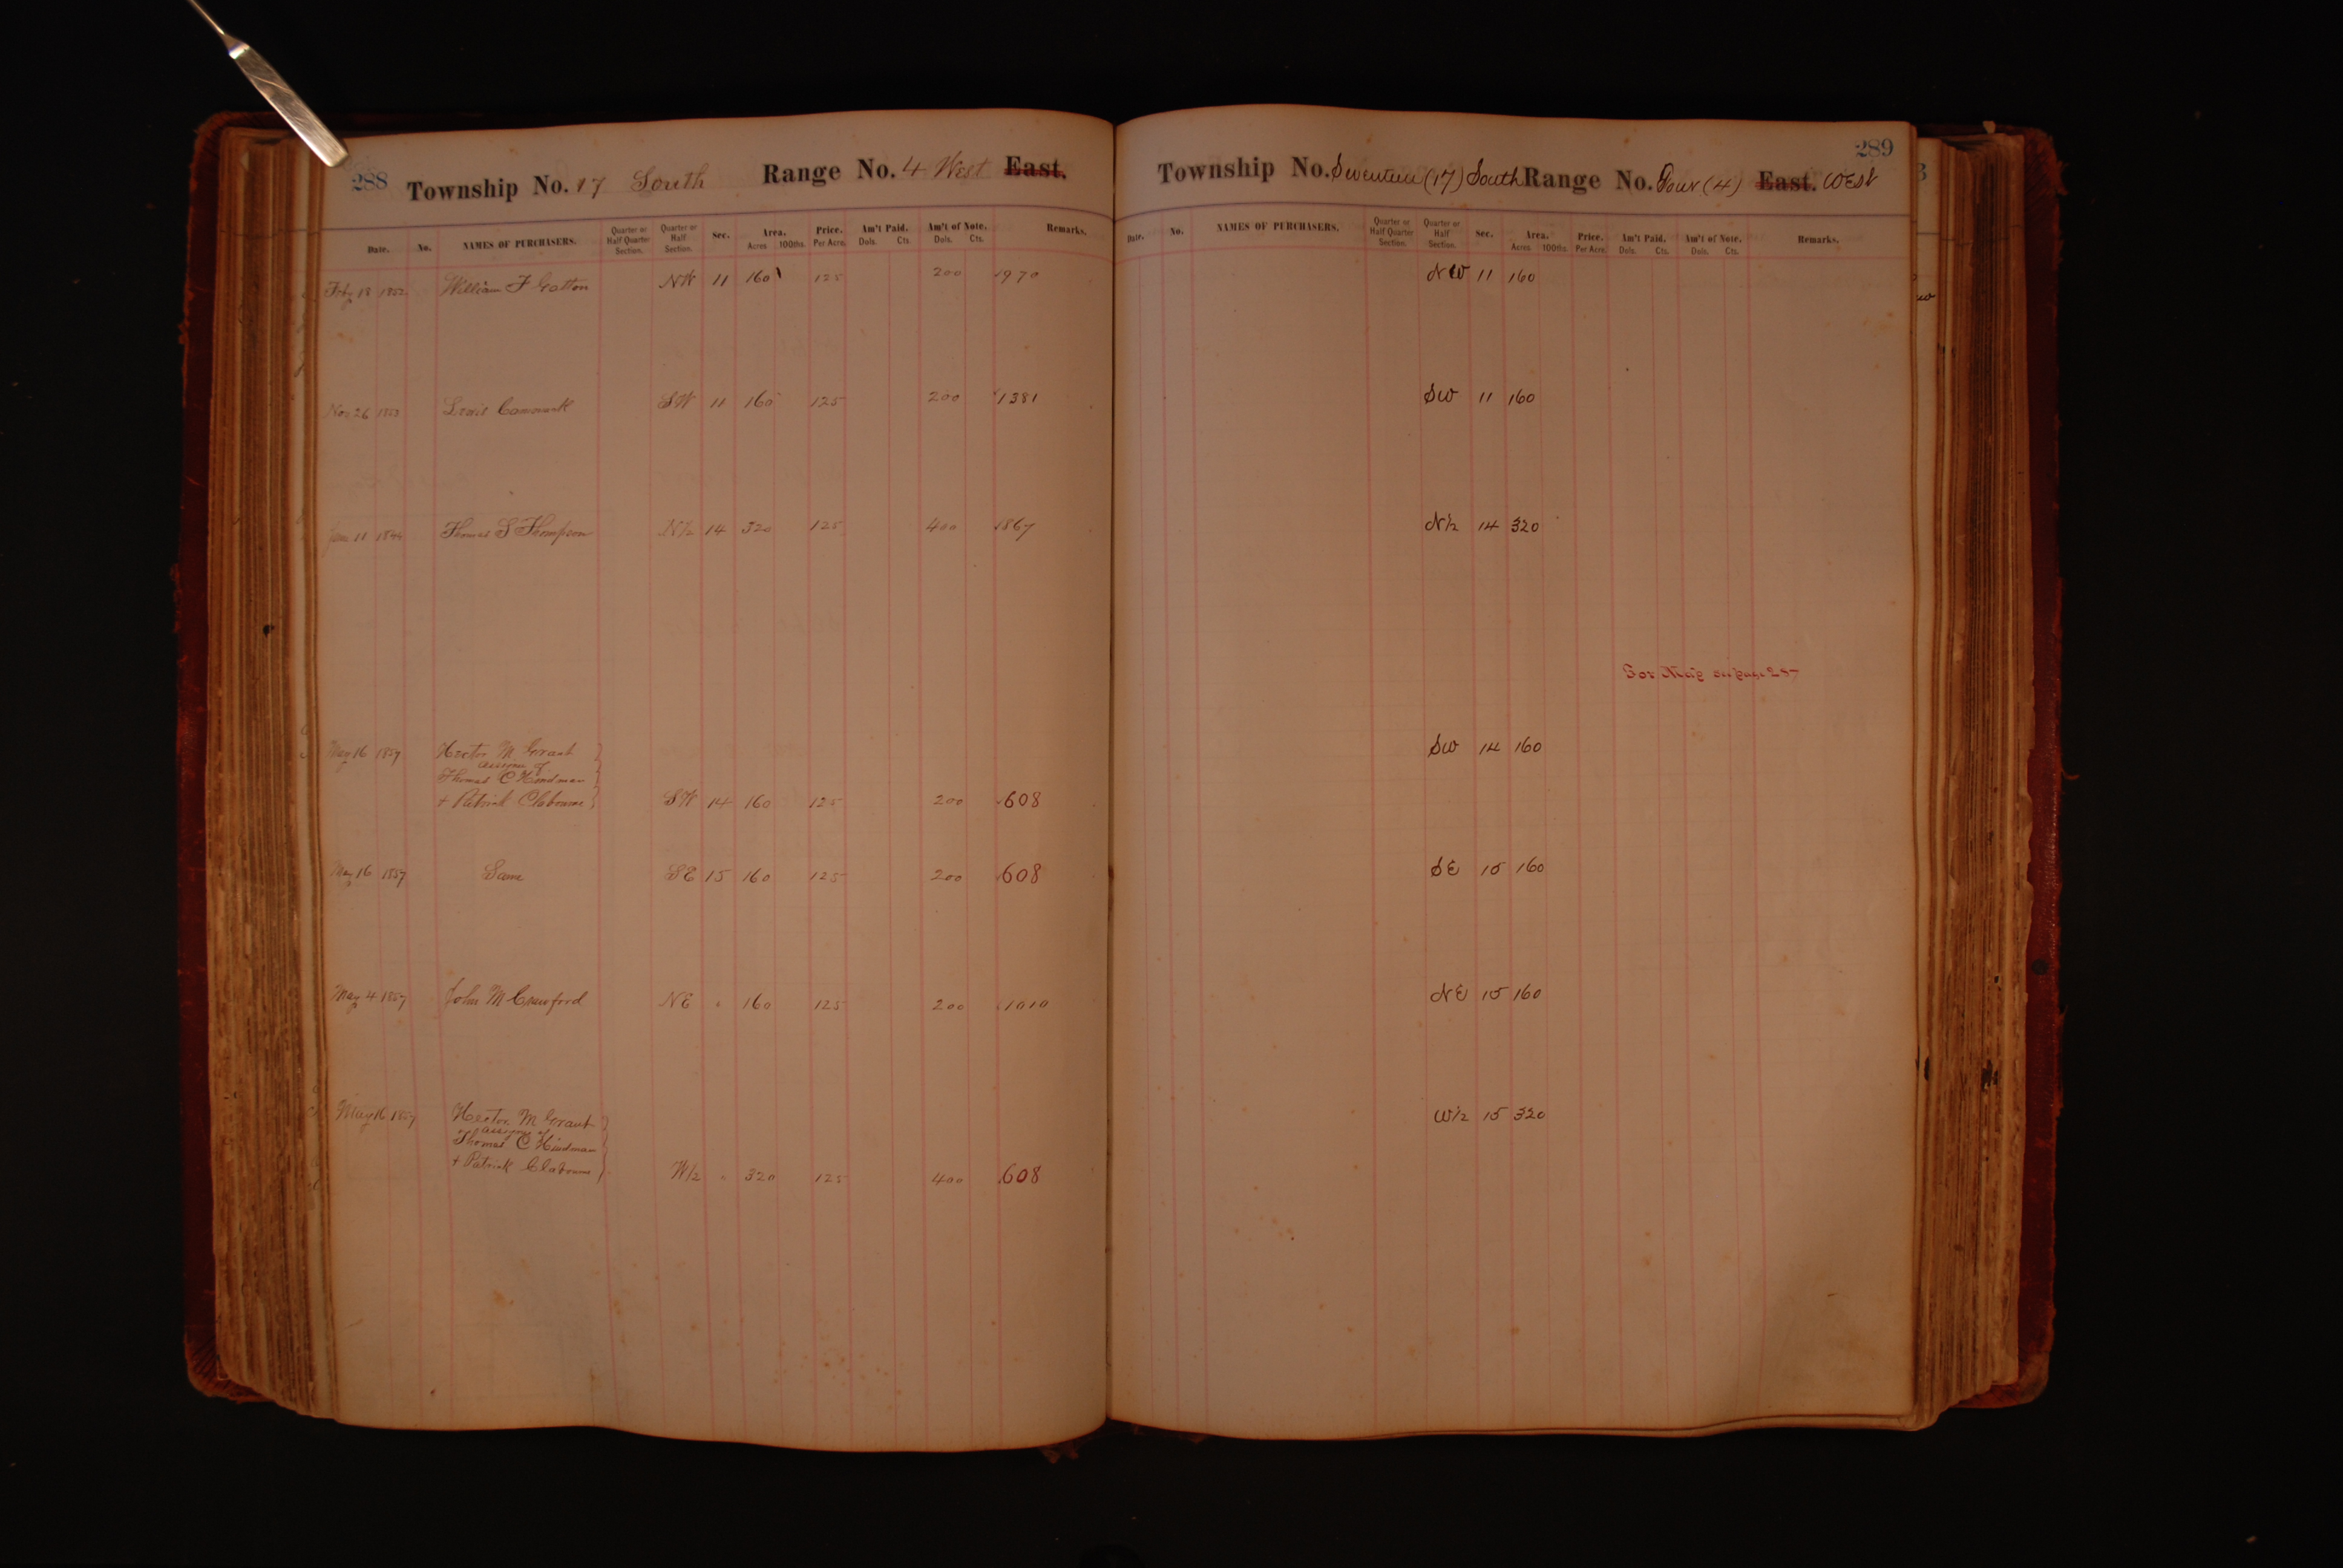 288 Township No. 17 South Range No. 4 West East.
Date. No. NAMES OF PURCHASERS. Quarter or Half Quarter Section. Quarter or Half Section. Sec. Area. Acres 100ths. Price. Per Acre. Am't Paid. Dols. Cts. Am't of Note. Dols. Cts. Remarks.
Feby 18 1852 William F Gatton NW 11 160 125 200 970
Nov 26 1853 Lewis SW 11 160 125 200 1381
11 Thomas S Thompson N½ 14 320 125 400 1867
May 16 1857 Hector M Grant
assignee of
Thomas C Hindman
+ Patrick Claborne SW 14 160 125 200 608
May 16 1857 Same SE 15 160 125 200 608
May 4 1857 John M Crawford NE " 160 125 200 1010
May 16 1857 Hector M Grant
assignee of
Thomas C Hindman
+ Patrick Claborne W½ " 320 125 400 608
289
Township No. Seventeen (17) South Range No. Four (4) East. WEST
Date. No. NAMES OF PURCHASERS. Quarter or Half Quarter Section. Quarter or Half Section. Sec. Area. Acres 100ths. Price. Per Acre. Am't Paid. Dols. Cts. Am't of Note. Dols. Cts. Remarks.
NW 11 160
SW 11 160
N½ 14 320
For Map see page 287
SW 14 160
SE 15 160
NE 15 160
W½ 15 320